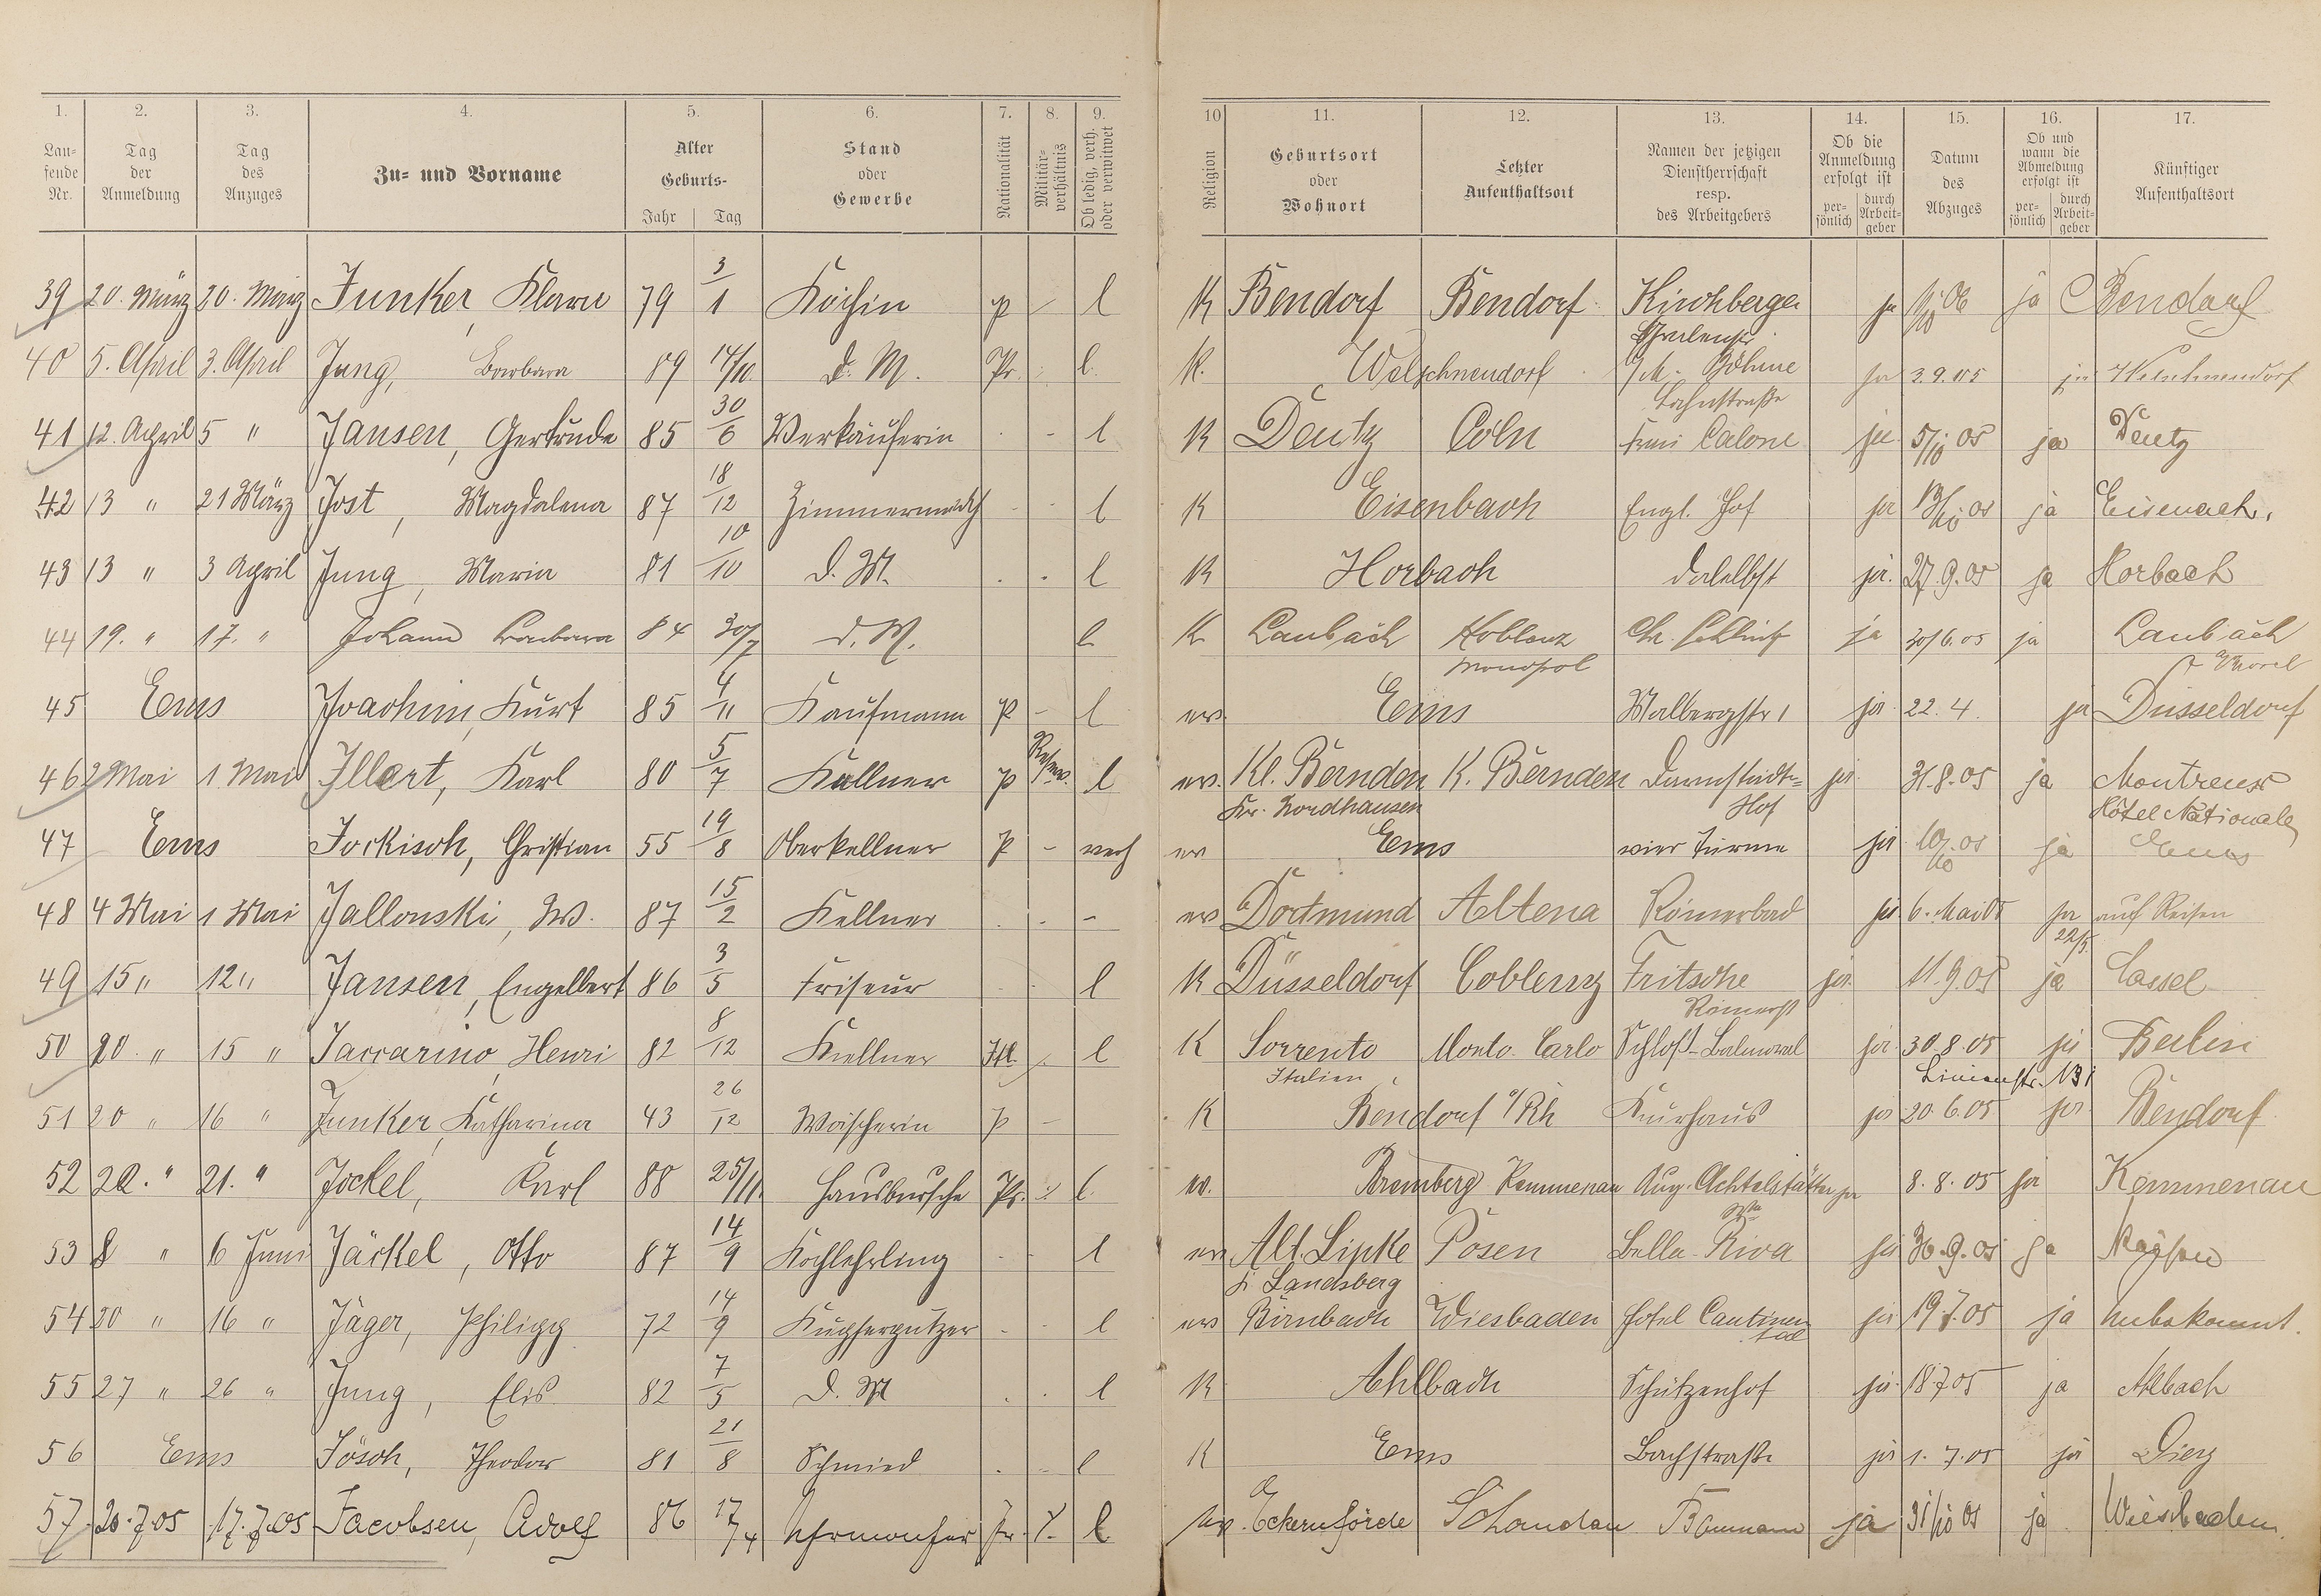 1. 2. 3. 4. 5. 6. 7. 8. 9. 10 11. 12. 13. 14. 15. 16. 17.
Lau-
fende
Nr.
Tag
der
Anmeldung
Tag
des
Anzuges
Zu- und Vorname
Alter
Geburts-
Jahr Tag
Stand
oder
Gewerbe
Nationalität
Militär-
verhältnis
Ob ledig, verh.
oder verwitwet
Religion
Geburtsort
oder
Wohnort
Letzter
Aufenthaltsort
Namen der jetzigen
Dienstherrschaft
resp.
des Arbeitgebers
Ob die
Anmeldung
erfolgt ist
per-
sönlich
durch
Arbeit-
geber
Datum
des
Abzuges
Ob und
wann die
Abmeldung
erfolgt ist
per-
sönlich
durch
Arbeit-
geber
Künftiger
Aufenthaltsort
39 20. März 20. März Junker, Klara 79 3/1 Köchin p – l K Bendorf Bendorf Kirchberger ja ja Bendorf
40 5. April 3. April Jung, Barbara 89 14/10. d. M. Pr. l. K. Welschnendorf Böhme ja 2.9.05 ja Welschnendorf
Lahnstraße
41 12. April 5 " Jansen, Gertrude 85 30/6 Verkäuferin - l K Deutz Cöln Calone ja 5/10 05 ja Deutz
42 13 " 21 März Jost, Magdalena 87 18/12 Zimmermdch l K Eisenbach Engl. Hof ja 13/10 05 ja Eisenach.
43 13 " 3 April Jung, Maria 81 10/10 D. M. l K Horbach daselbst ja. 27.9.05 ja Horbach
44 19. " 17. " Johann Barbara 84 30/7 d. M. l K. Laubach Koblenz Ch. ja 30/6.05 ja Laubach
Monopol
45 Ems Joachim, Kurt 85 4/11 Kaufmann P – l ev. Ems Malbergstr 1 ja 22.4. ja Düsseldorf
46 2 Mai 1 Mai Illert, Karl 80 5/7 Kellner p Reserv. l ev. Kl. Bernden K. Bernden Darmstädt= ja 31.8.05 ja Montreux
Kr. Nordhausen Hof Hôtel Nationale
47 Ems Jockisch, Christian 55 19/8 Oberkellner P – verh ev Ems vier Türme ja 10/10 05 ja Ems
48 4 Mai 1 Mai Jallonski, W. 87 15/2 Kellner - ev Dortmund Altena Römerbad ja 6. Mai 05 ja auf Reisen
22/5.
49 15 " 12 " Jansen, Engelbert 86 3/5 Friseur l K Düsseldorf Coblenz Fritsche ja. 11.9.05 ja Cassel
Römerst
50 20. " 15 " Jaccarino, Henri 82 8/12 Kellner Itl l K Sorrento Monto Carlo Schloß-Balmoral ja 30.8.05 ja Berlin
Italien Linienstr. 131
51 20 " 16 " Junker, Katharina 43 26/12 Wäscherin p – K Bendorf a/Rh Kurhaus ja 20.6.05 ja Bendorf
52 22. " 21. " Jockel, Karl 88 25/11. Hausbursche Pr. l. ev. Bremberg Kemmenau Aug. Achtelstätter ja 8.8.05 ja Kemmenau
Ww
53 8 " 6 Juni Jäckel, Otto 87 14/9 Kochlehrling l ev Alt. Lipke Posen Bella-Riva ja 30.9.05 ja
Landsberg
54 20 " 16 " Jäger, Philipp 72 14/9 Kupferputzer l ev Birnbach Wiesbaden Hotel Continen ja 19.7.05 ja unbekannt.
tal
55 27 " 26 " Jung, Elis 82 7/5 D. M l K Ahlbach Schützenhof ja. 18.7.05 ja Ahlbach
56 Ems Jösch, Theodor 81 21/8 Schmied l K Ems Bachstraße ja 1.7.05 ja Diez
57. 20.7.05 17.7.05 Jacobsen, Adolf 86 17/4 Uhrmacher Pr. l ev. Eckernförde Schandau Baumann ja 31/10 05 ja Wiesbaden.